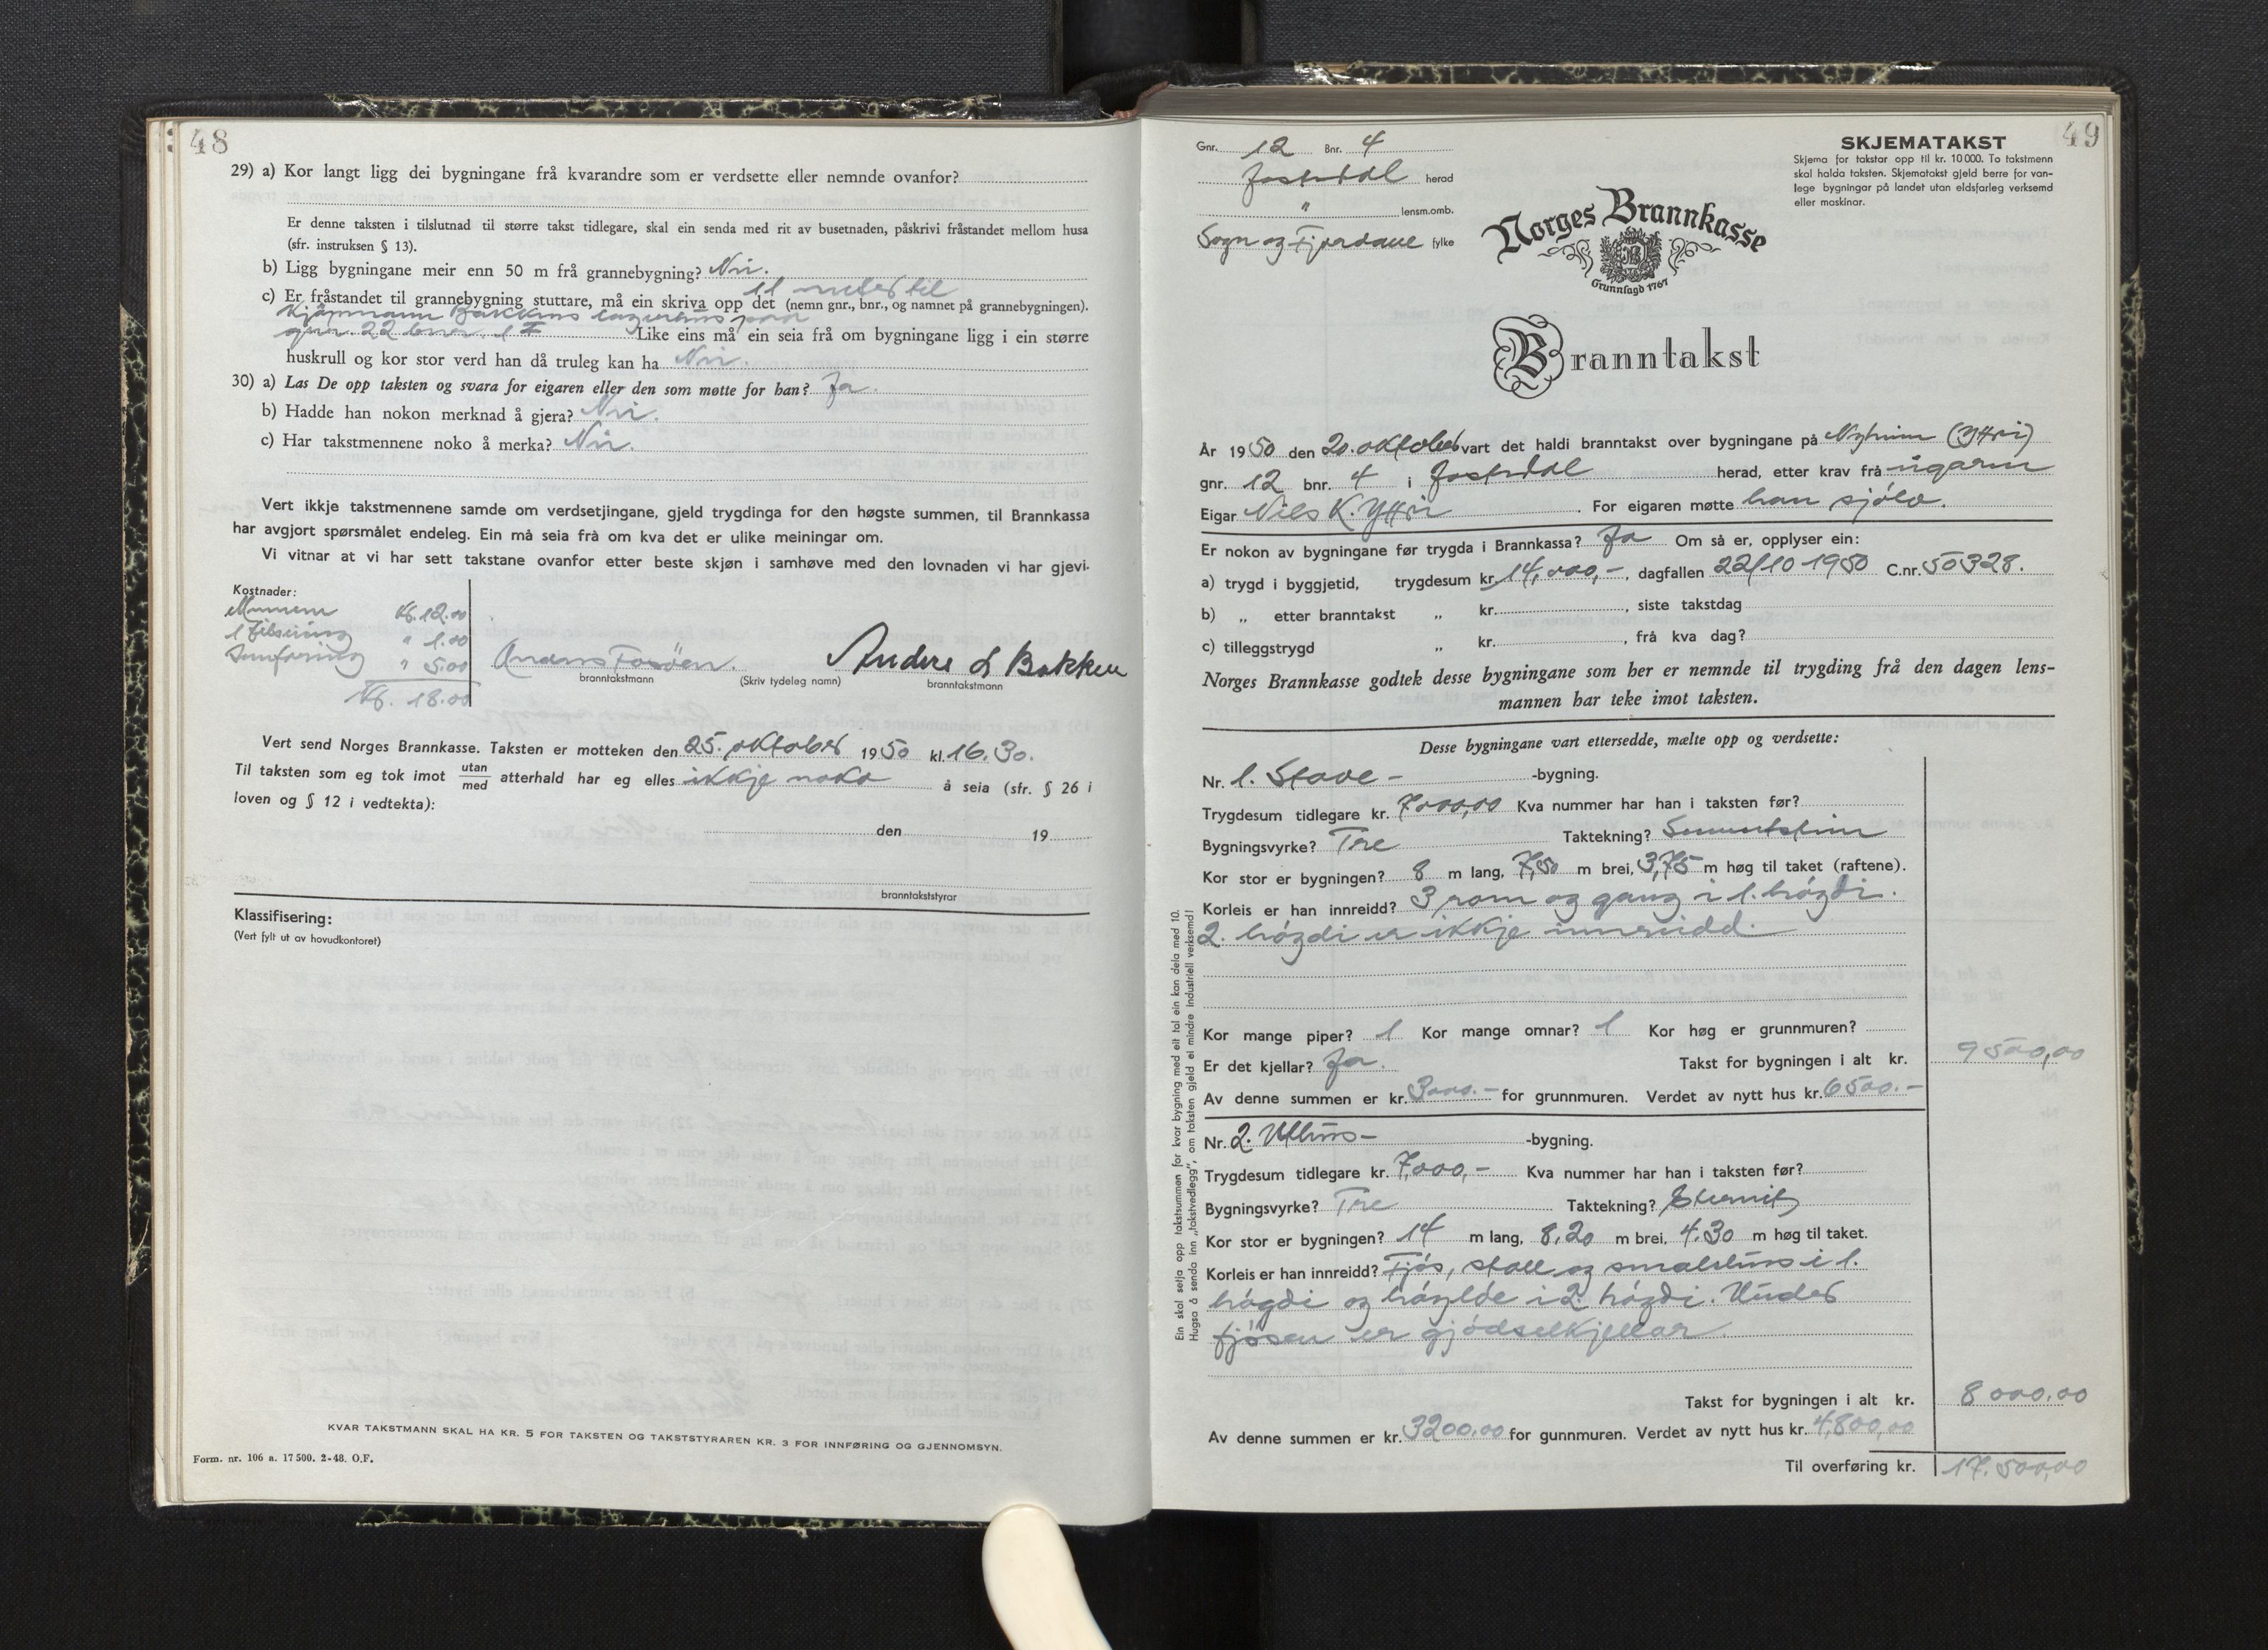 48
29) a) Kor langt ligg dei bygningane frå kvarandre som er verdsette eller nemnde ovanfor?
Er denne taksten i tilslutnad til større takst tidlegare, skal ein senda med rit av busetnaden, påskrivi fråstandet mellom husa
(sfr. instruksen § 13).
b) Ligg bygningane meir enn 50 m frå grannebygning? Nei.
11 meter til
c) Er fråstandet til grannebygning stuttare, må ein skriva opp det (nemn gnr., bnr., og namnet på grannebygningen).
Kjøpmann Bakkens lagerhus paa
gnr. 22 bnr. 1 Like eins må ein seia frå om bygningane ligg i ein større
huskrull og kor stor verd han då truleg kan ha Nei.
30) a) Las De opp taksten og svara for eigaren eller den som møtte for han? Ja.
b) Hadde han nokon merknad å gjera? Nei.
c) Har takstmennene noko å merka? Nei.
Vert ikkje takstmennene samde om verdsetjingane, gjeld trygdinga for den høgste summen, til Brannkassa
har avgjort spørsmålet endeleg. Ein må seia frå om kva det er ulike meiningar om.
Vi vitnar at vi har sett takstane ovanfor etter beste skjøn i samhøve med den lovnaden vi har gjevi.
Kostnader:
Mennene kr. 12.00
1 tilsening " 1.00
Innføring " 5.00
Kr. 18.00
Anders Fossøen. Anders L Bakken
branntakstmann (Skriv tydeleg namn) branntakstmann
Vert send Norges Brannkasse. Taksten er motteken den 25. oktober 1950 kl. 16.30.
Til taksten som eg tok imot utan/med atterhald har eg elles ikkje noko å seia (sfr. § 26 i
loven og § 12 i vedtekta):
den 19
branntakststyrar
Klassifisering:
(Vert fylt ut av hovudkontoret)
KVAR TAKSTMANN SKAL HA KR. 5 FOR TAKSTEN OG TAKSTSTYRAREN KR. 3 FOR INNFØRING OG GJENNOMSYN.
Form. nr. 106 a. 17 500. 2-48. O.F.
49
Gnr. 12 Bnr. 4
Jostedal herad
" lensm.omb.
Sogn og Fjordane fylke
SKJEMATAKST
Skjema for takstar opp til kr. 10 000. To takstmenn
skal halda taksten. Skjematakst gjeld berre for van-
lege bygningar på landet utan eldsfarleg verksemd
eller maskinar.
Norges Brannkasse
Grunnlagd 1767
Branntakst
År 1950 den 20. oktober vart det haldi branntakst over bygningane på Nyheim (Yttri)
gnr. 12 bnr. 4 i Jostedal herad, etter krav frå eigaren
Eigar Nils K. Yttri. For eigaren møtte han sjølv.
Er nokon av bygningane før trygda i Brannkassa? Ja Om så er, opplyser ein:
a) trygd i byggjetid, trygdesum kr. 14,000,-, dagfallen 22/10 1950 C.nr. 50328.
b) „ etter branntakst „ kr. , siste takstdag
c) tilleggstrygd „ kr. , frå kva dag?
Norges Brannkasse godtek desse bygningane som her er nemnde til trygding frå den dagen lens-
mannen har teke imot taksten.
Desse bygningane vart ettersedde, mælte opp og verdsette:
Nr. 1. Stove- -bygning.
Trygdesum tidlegare kr. 7000,00 Kva nummer har han i taksten før?
Bygningsvyrke? Tre Taktekning? Sementstein
Kor stor er bygningen? 8 m lang, 7,50 m brei, 3,75 m høg til taket (raftene).
Korleis er han innreidd? 3 rom og gang i 1. høgdi.
2. høgdi er ikkje innreidd.
Kor mange piper? 1 Kor mange omnar? 1 Kor høg er grunnmuren?
Er det kjellar? Ja. Takst for bygningen i alt kr. 9500,00
Av denne summen er kr. 3000.- for grunnmuren. Verdet av nytt hus kr. 6500.-
Nr. 2. Uthus- -bygning.
Trygdesum tidlegare kr. 7,000,- Kva nummer har han i taksten før?
Bygningsvyrke? Tre Taktekning? Eternit
Kor stor er bygningen? 14 m lang, 8,20 m brei, 4.30 m høg til taket.
Korleis er han innreidd? Fjøs, stall og smalehus i 1.
høgdi og høyløe i 2. høgdi. Under
fjøsen er gjødselkjellar.
Takst for bygningen i alt kr. 8000.00
Av denne summen er kr. 3200,00 for gunnmuren. Verdet av nytt hus kr. 4,800,00
Til overføring kr. 17.500,00
Ein skal setja opp takstsummen for kvar bygning med eit tal ein kan dela med 10.
Hugsa å senda inn „takstvedlegg", om taksten gjeld ei mindre industriell verksemd!